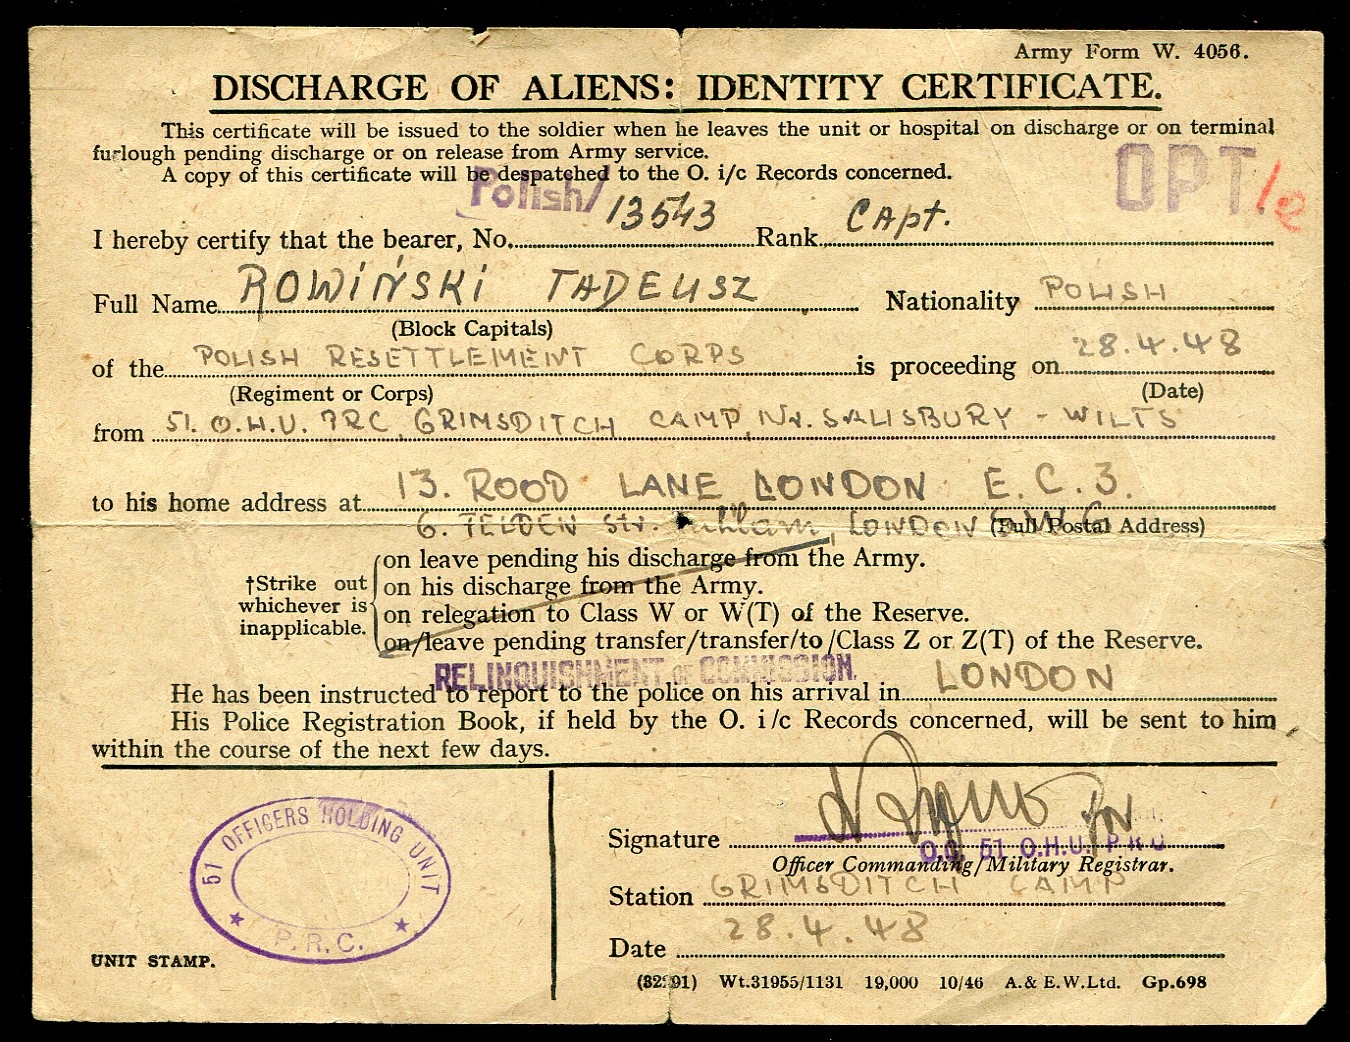 Army Form W. 4056.
DISCHARGE OF ALIENS: IDENTITY CERTIFICATE.
This certificate will be issued to the soldier when he leaves the unit or hospital on discharge or on terminal
furlough pending discharge or on release from Army service.
A copy of this certificate will be despatched to the O. i/c Records concerned.
OPT/e
I hereby certify that the bearer, No. Polish/ 13543 Rank Capt.
Full Name ROWIŃSKI TADEUSZ Nationality POLISH
(Block Capitals)
of the POLISH RESETTLEMENT CORPS is proceeding on 28.4.48
(Regiment or Corps) (Date)
from 51. O.H.U. PRC, GRIMSDITCH CAMP, Nr. SALISBURY - WILTS
to his home address at 13. ROOD LANE LONDON E.C.3.
6. Str. Fulham, LONDON S.W.6 (Full Postal Address)
†Strike out whichever is inapplicable.
on leave pending his discharge from the Army.
on his discharge from the Army.
on relegation to Class W or W(T) of the Reserve.
on/leave pending transfer/transfer/to/Class Z or Z(T) of the Reserve.
RELINQUISHMENT OF COMMISSION.
He has been instructed to report to the police on his arrival in LONDON
His Police Registration Book, if held by the O. i/c Records concerned, will be sent to him
within the course of the next few days.
51 OFFICERS HOLDING UNIT
★ P.R.C. ★
UNIT STAMP.
Signature
O.C. 51 O.H.U. P R C
Officer Commanding/Military Registrar.
Station GRIMSDITCH CAMP
Date 28.4.48
Wt.31955/1131 19,000 10/46 A.& E.W.Ltd. Gp.698